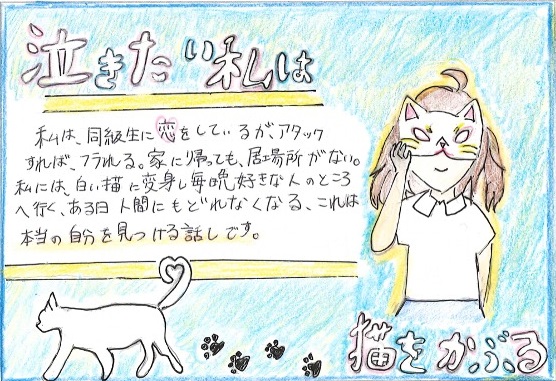 泣きたい私は
私は、同級生に恋をしているが、アタック
すれば、フラれる。家に帰っても、居場所がない。
私には、白い猫に変身し毎晩好きな人のところ
へ行く、ある日人間にもどれなくなる、これは
本当の自分を見つける話しです。
猫をかぶる